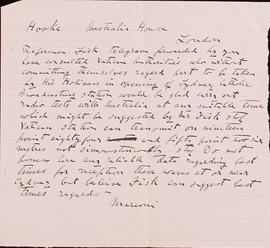 Hooke Australia House
London
Reference Fisk telegram forwarded by you
have consulted Vatican authorities who without
committing themselves regard part to be taken
by His Holiness in opening of Sydney Catholic
Broadcasting station would be glad carry out
radio tests with Australia at any suitable time
which might be suggested by Mr Fisk stop
Vatican station can transmit on nineteen
point eightyfour and fifty point two six
metres not simultaneously stop Do not
possess here any reliable data regarding best
times for reception these waves at or near
Sydney but believe Fisk can suggest best
times regards
Marconi